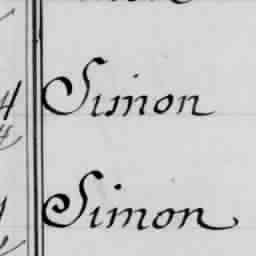 4 Simon
Simon